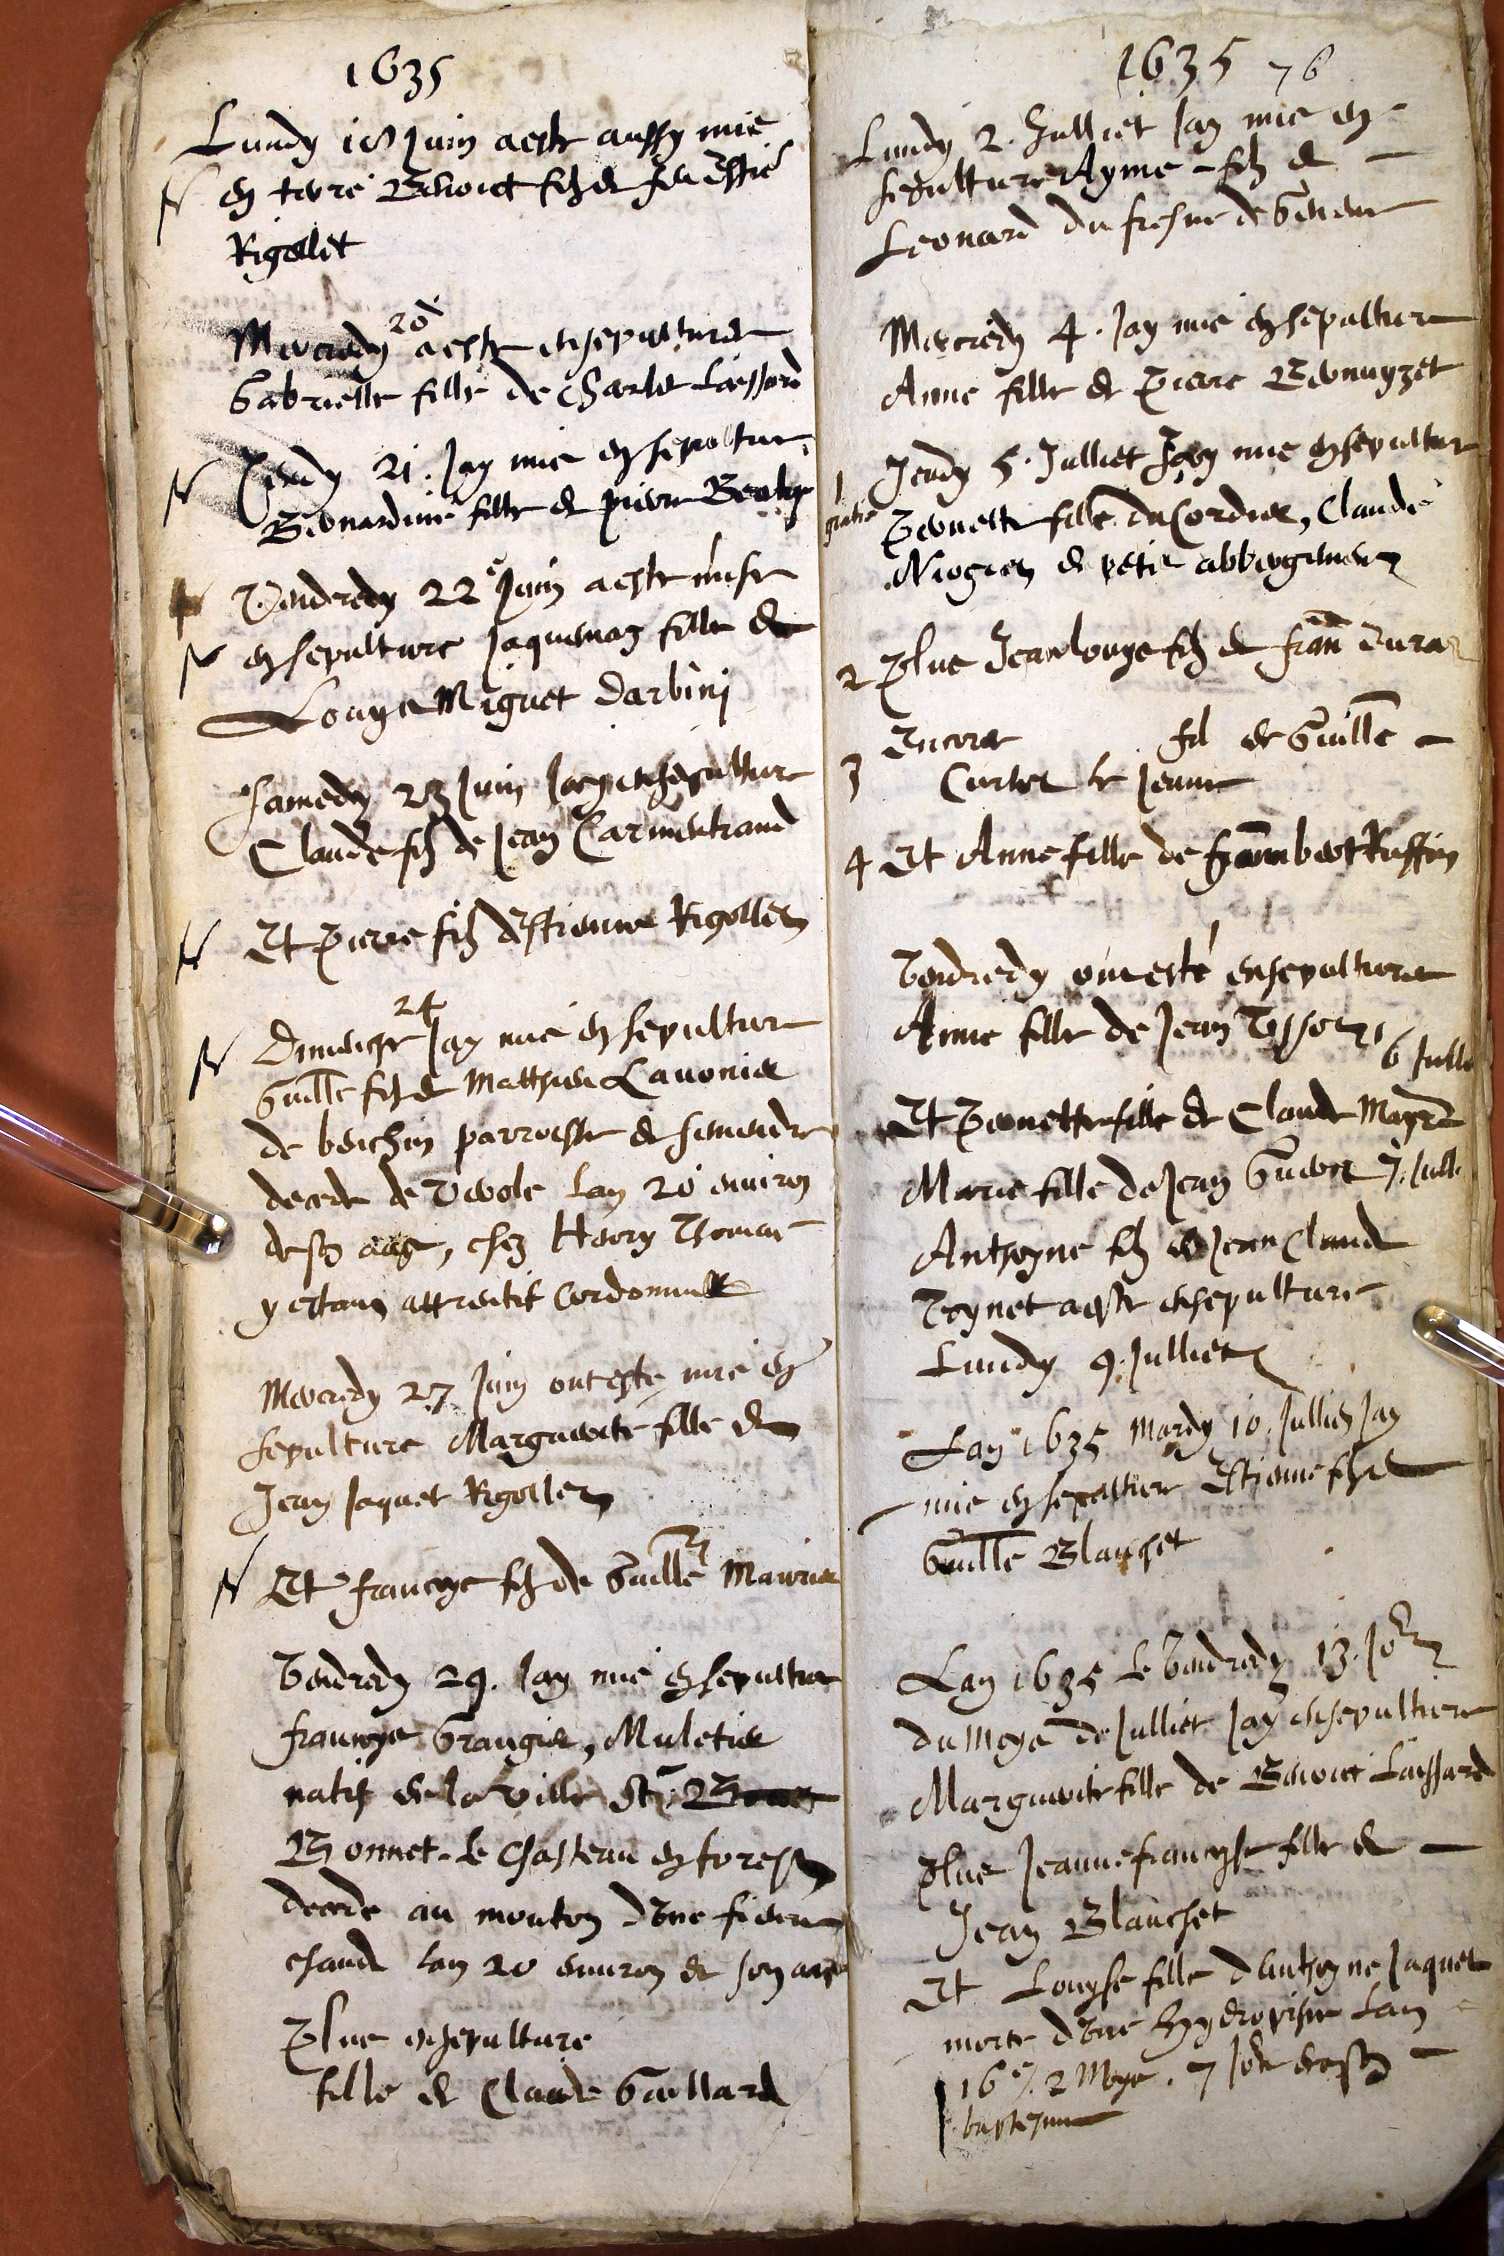 1635
Lundy 18 Juin aeste aussy mis
en terre Benoict filz de feu Estie
Rigollet
Mercredy 20 aeste ensepulture
Gabrielle fille de Charlet Laissard
Jeudy 21. Jay mis en sepultur
Bernardine fille de pierre
Vendredy 22 Juin aeste mise
en sepulture Jaquemaz fille de
Louys Miguet Darbini
Samedy 23 Juin Jay ensepulture
Claude filz de Jean Carmentrand
Et Pierre filz d'Estienne Rigollet
Dimenche 24 Jay mis en sepulture
Guille filz de Matthieu Lavonier
de parroisse de Simandre
decede de Verole lan 20 environ
de son aage, chez
y estant apprentif Cordonnier
Mercredy 27 Juin ont este mis en
sepulture Marguerite fille de
Jean Jaquet Rigollet
Et francoys filz de Guille Maurier
Vendredy 29. Jay mis en sepulture
francoys Grangier, Muletier
natif de la ville St
Bonnet le Chasteau en forest
decede au mouton d'une fievre
chaude lan 20 environ de son aage
Plus ensepulture
fille de Claude Gaillard
1635 76
Lundy 2. Julliet Jay mis en
sepulture Ayme filz de
Leonard du fresne de Geneve
Mercredy 4. Jay mis en sepulture
Anne fille de Pierre
Jeudy 5. Julliet Jay mis en sepultur
1 gratis Pernette fille du Cordier, Claude
Niogret de petit abbergement
2 Plus Jean louys filz de fran Duraz
3 Encores fil de Guille
Curtet le Jeune
4 Et Anne fille de Ruffin
Vendredy ont esté ensepulture
Anne fille de Jean Tissot 6 Jull
Et Pernette fille de Claude
Marie fille de Jean 7. Jull.
Anthoyne filz de Jean Claude
Poynet aeste ensepulture
Lundy 9. Julliet
Lan 1635 Mardy 10. Julliet Jay
mis en sepulture Estienne filz de
Guille Blanchet
Lan 1635 le Vendredy 13. Jour
du Moys de Julliet Jay ensepulture
Marguerite fille de Benoict Laissard
Plus Jeanne francoyse fille de
Jean Blanchet
Et Louyse fille d'Anthoyne Jaquet
morte d'une hydropisie Lan
16e. 2 Moys. 7 Jour de son
baptesme